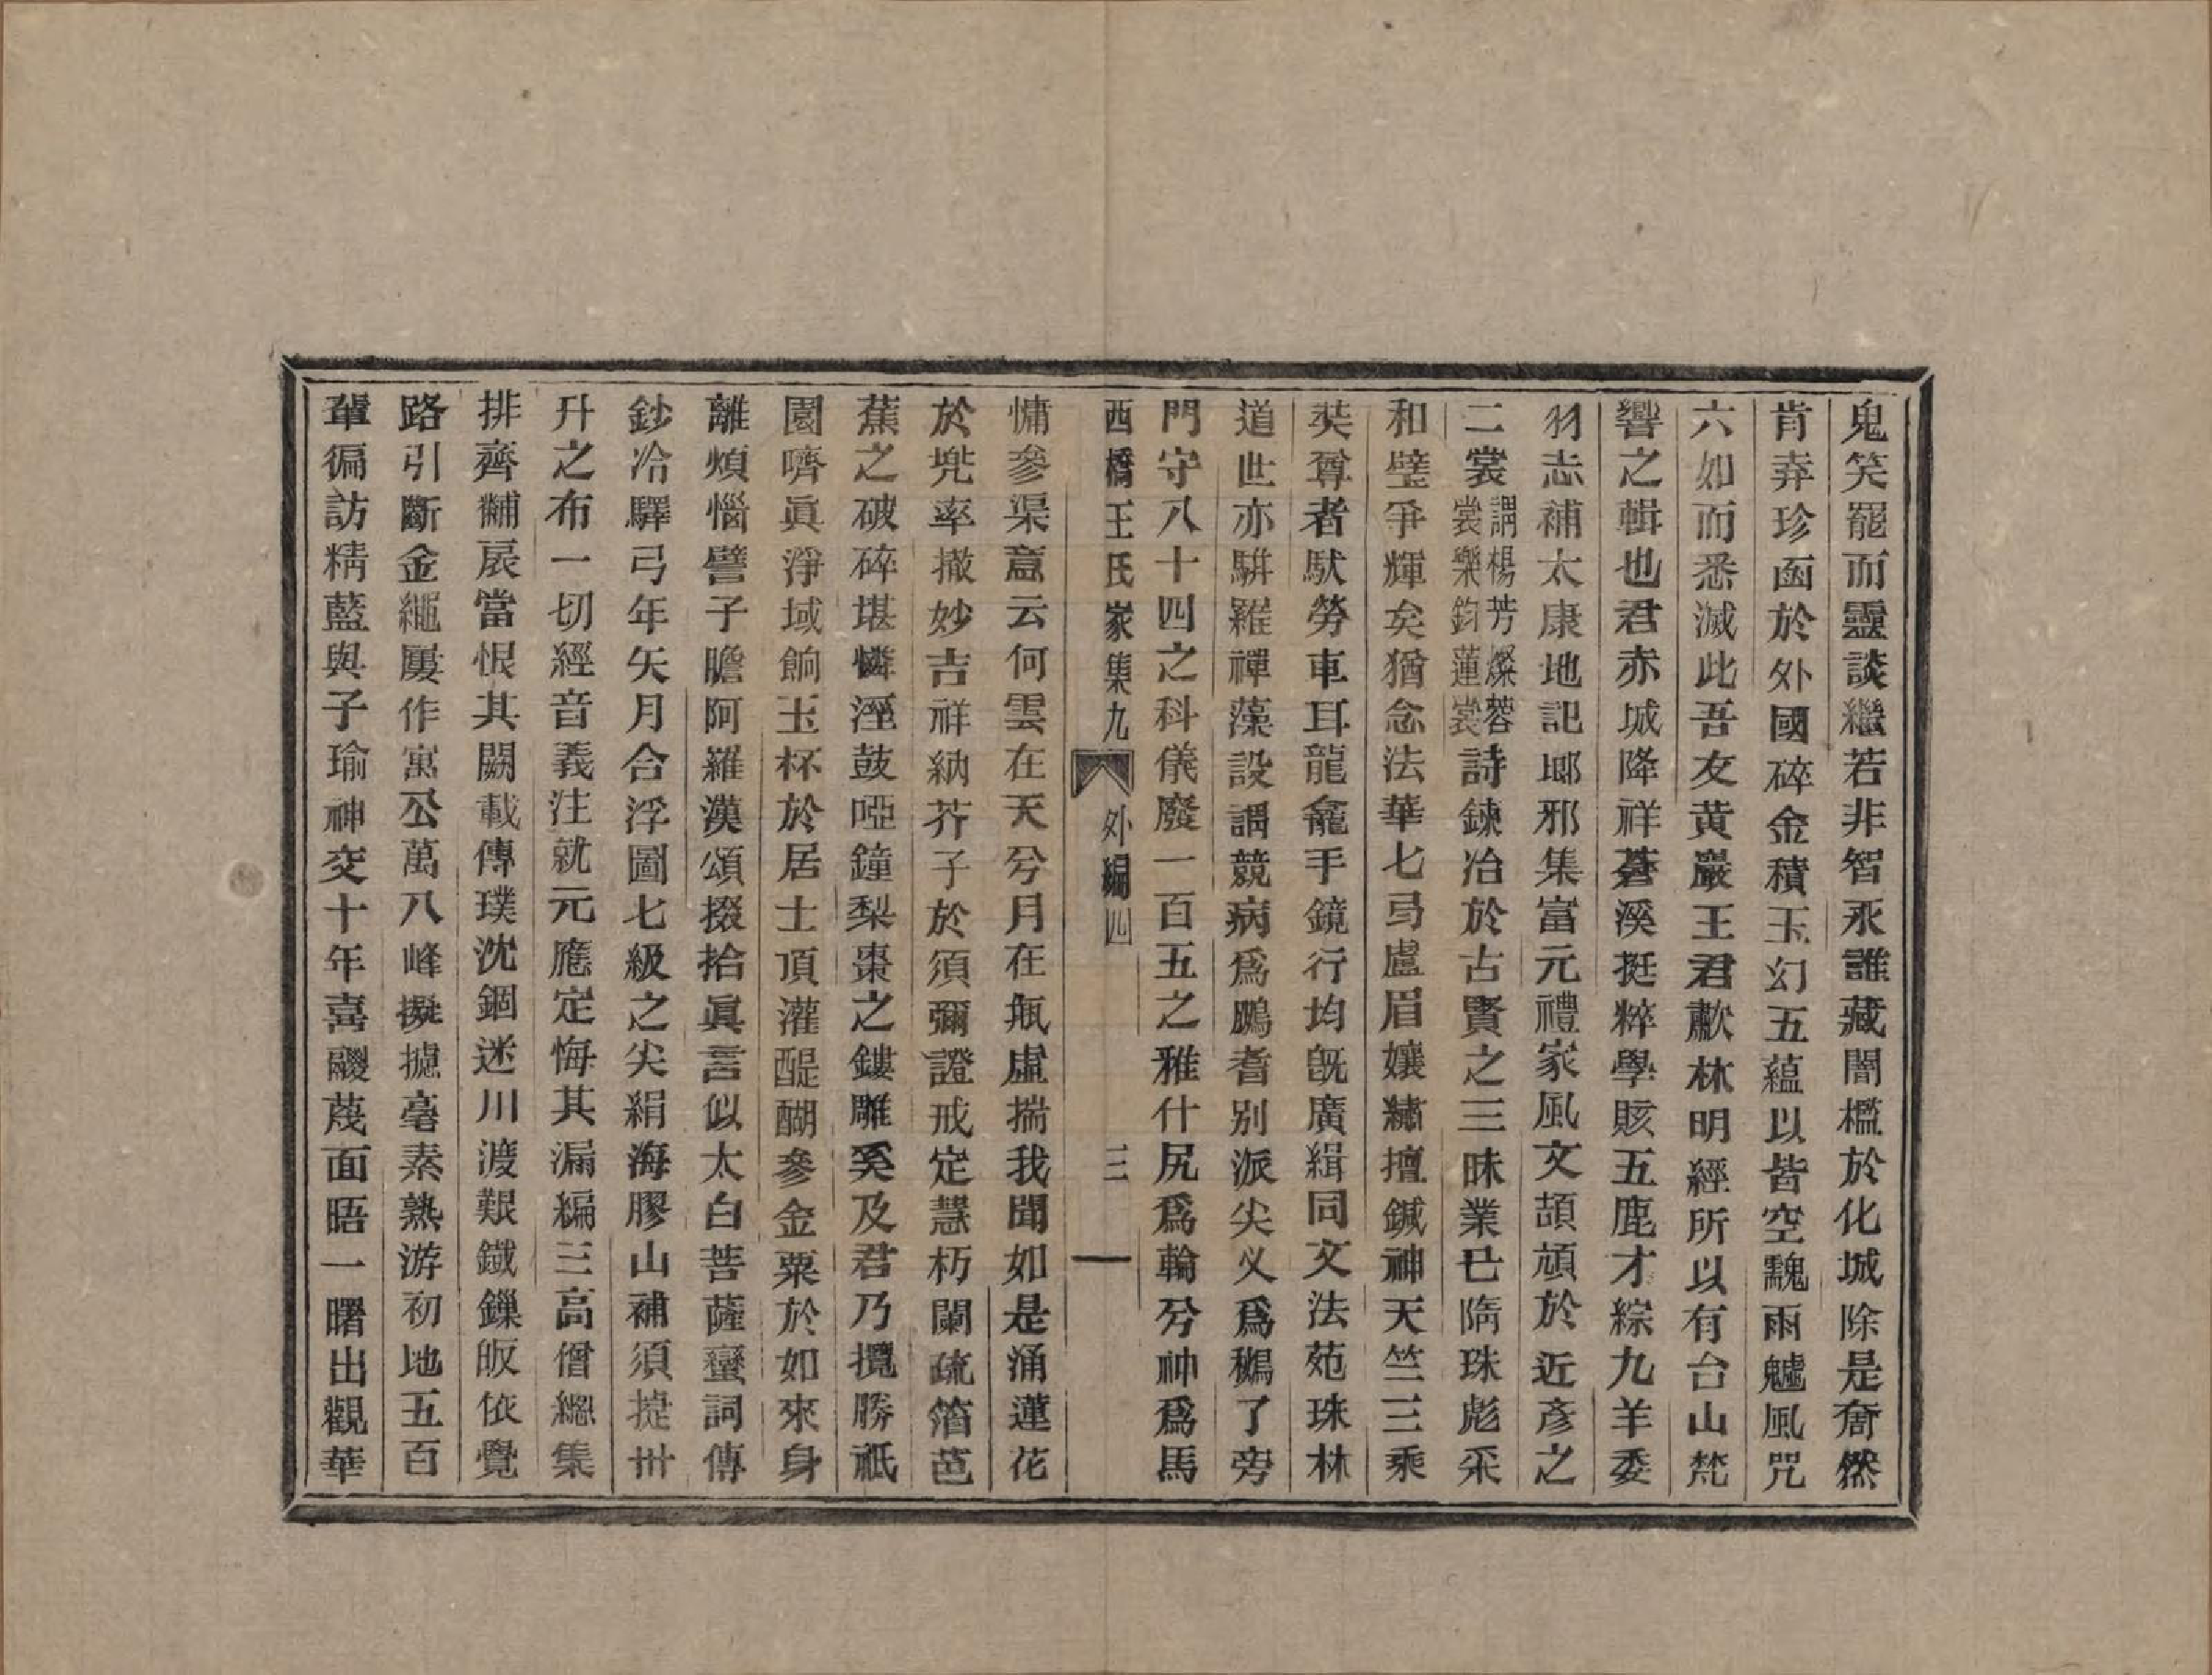 鬼笑罷而靈談繼若非智永誰藏闇檻於化城除是奝然
肯弆珍函於外國碎金積玉幻五蘊以皆空䰱雨魖風咒
六如而悉滅此吾友黃巖王君㱆林明經所以有台山梵
響之輯也君赤城降祥蒼溪挺粹學賅五鹿才綜九羊委
羽志補太康地記瑯邪集富元禮家風文頡頏於近彥之
二裳謂楊芳燦蓉裳樂鈞蓮裳詩鍊冶於古賢之三昧業已隋珠彪采
和璧爭輝矣猶念法華七弓盧眉孃繡擅鍼神天竺三乘
奘尊者馱勞車耳龍龕手鏡行均旣廣緝同文法苑珠林
道世亦駢羅禪藻設謂競病爲鵬耆别派尖义爲鵶了旁
門守八十四之科儀廢一百五之雅什尻爲輪兮神爲馬
西橋王氏家集九 外編四 三
慵參渠意云何雲在天兮月在甁虛揣我聞如是涌蓮花
於兜率撤妙吉祥納芥子於須彌證戒定慧朽闌疏箔芭
蕉之破碎堪憐溼鼓啞鐘梨棗之鏤雕奚及君乃攬勝祇
園嚌眞淨域餉玉杯於居士頂灌醍醐參金粟於如來身
離煩惱譬子瞻阿羅漢頌掇拾眞言似太白菩薩蠻詞傳
鈔冷驛弓年矢月合浮圖七級之尖絹海膠山補須提卅
升之布一切經音義注就元應定悔其漏編三高僧總集
排齊黼扆當恨其闕載傳璞沈錮迷川渡艱鐵鏁皈依覺
路引斷金繩屢作寓公萬八峰擬攄毫素熟游初地五百
輩徧訪精藍與子瑜神交十年喜翪蔑面晤一曙出觀華